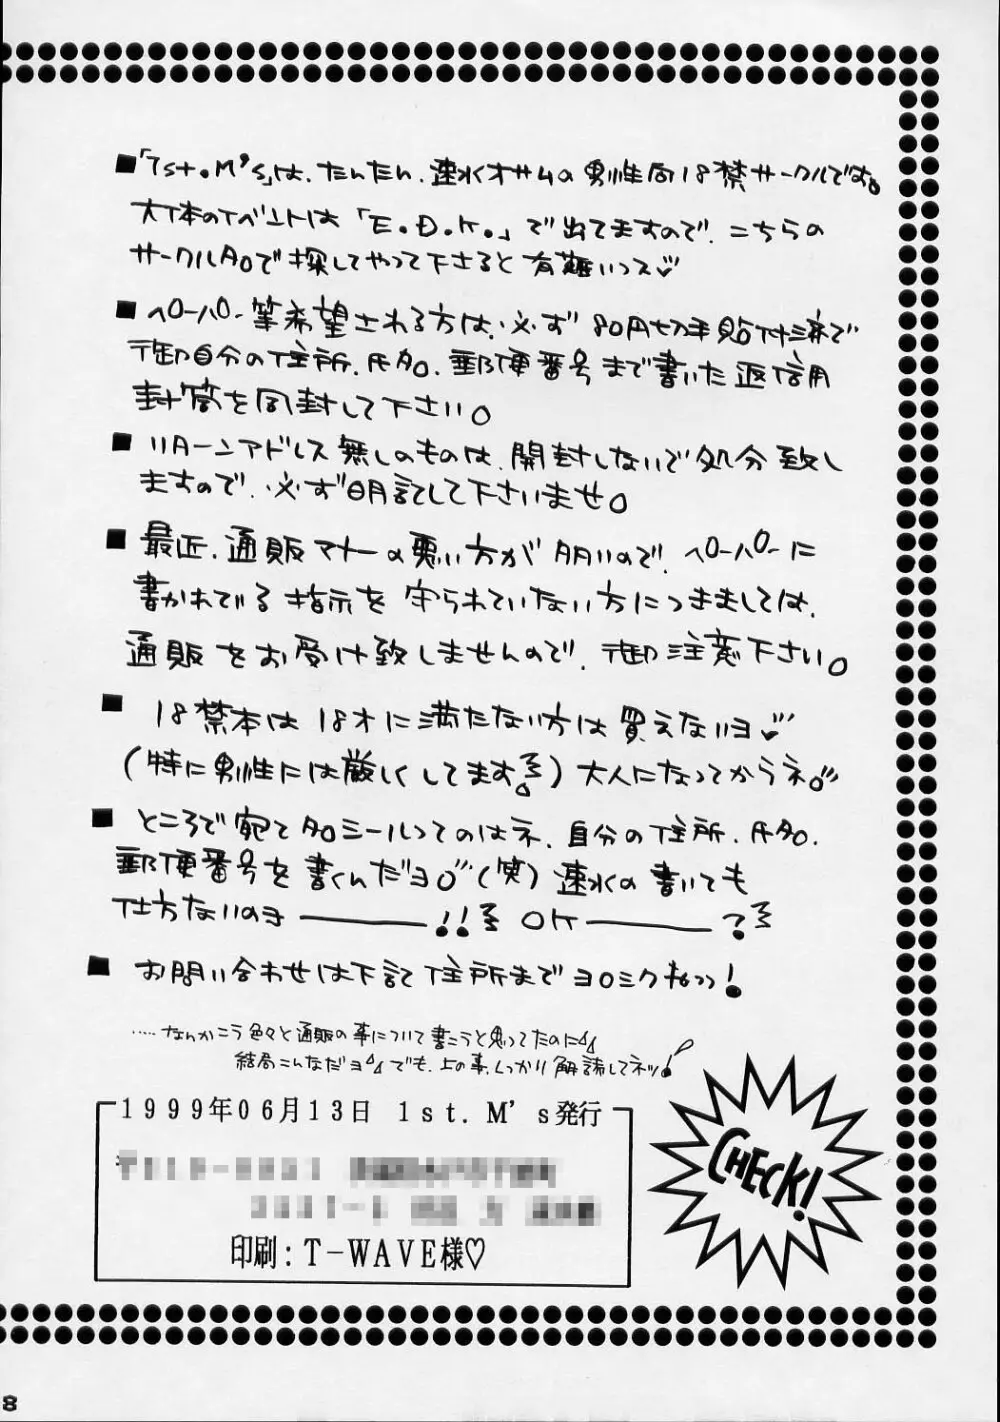 ■「1st.M's」は、たんたん、速水オサムの男性向18禁サークルです。
大体のイベントは「E.D.K.」で出てますので、こちらの
サークル名で探してやって下さると有難いっス♡
■ペーパー等希望される方は、必ず80円切手貼付済で
御自分の住所、氏名、郵便番号まで書いた返信用
封筒を同封して下さい。
■リターンアドレス無しのものは、開封しないで処分致し
ますので、必ず明記して下さいませ。
■最近、通販マナーの悪い方が多いので、ペーパーに
書かれてる指示を守られていない方につきましては、
通販をお受け致しませんので、御注意下さい。
■18禁本は18才に満たない方は買えないヨ♡
(特に男性には厳しくしてます!)大人になってからネ。
■ところで宛て名シールってのはネ、自分の住所、氏名、
郵便番号を書くんだヨ。(笑)速水の書いても
仕方ないのヨ———!! OK———?
■お問い合わせは下記住所までヨロシクねっっ!
……なんかこう色々と通販の事について書こうと思ってたのに
結局こんなだヨ でも、上の事、しっかり解読してネッ!
1999年06月13日 1st. M's発行
印刷：T-WAVE様♡
CHECK!
8